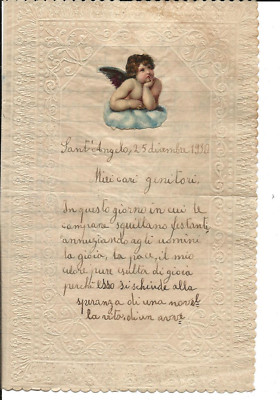 Sant'Angelo, 25 dicembre 1930
Miei cari genitori.
In questo giorno in cui le
campane squillano festanti
annunziando agli uomini
la gioia, la pace, il mio
cuore pure esulta di gioia
perchè esso si schiude alla
speranza di una novel
la vita, di un avve